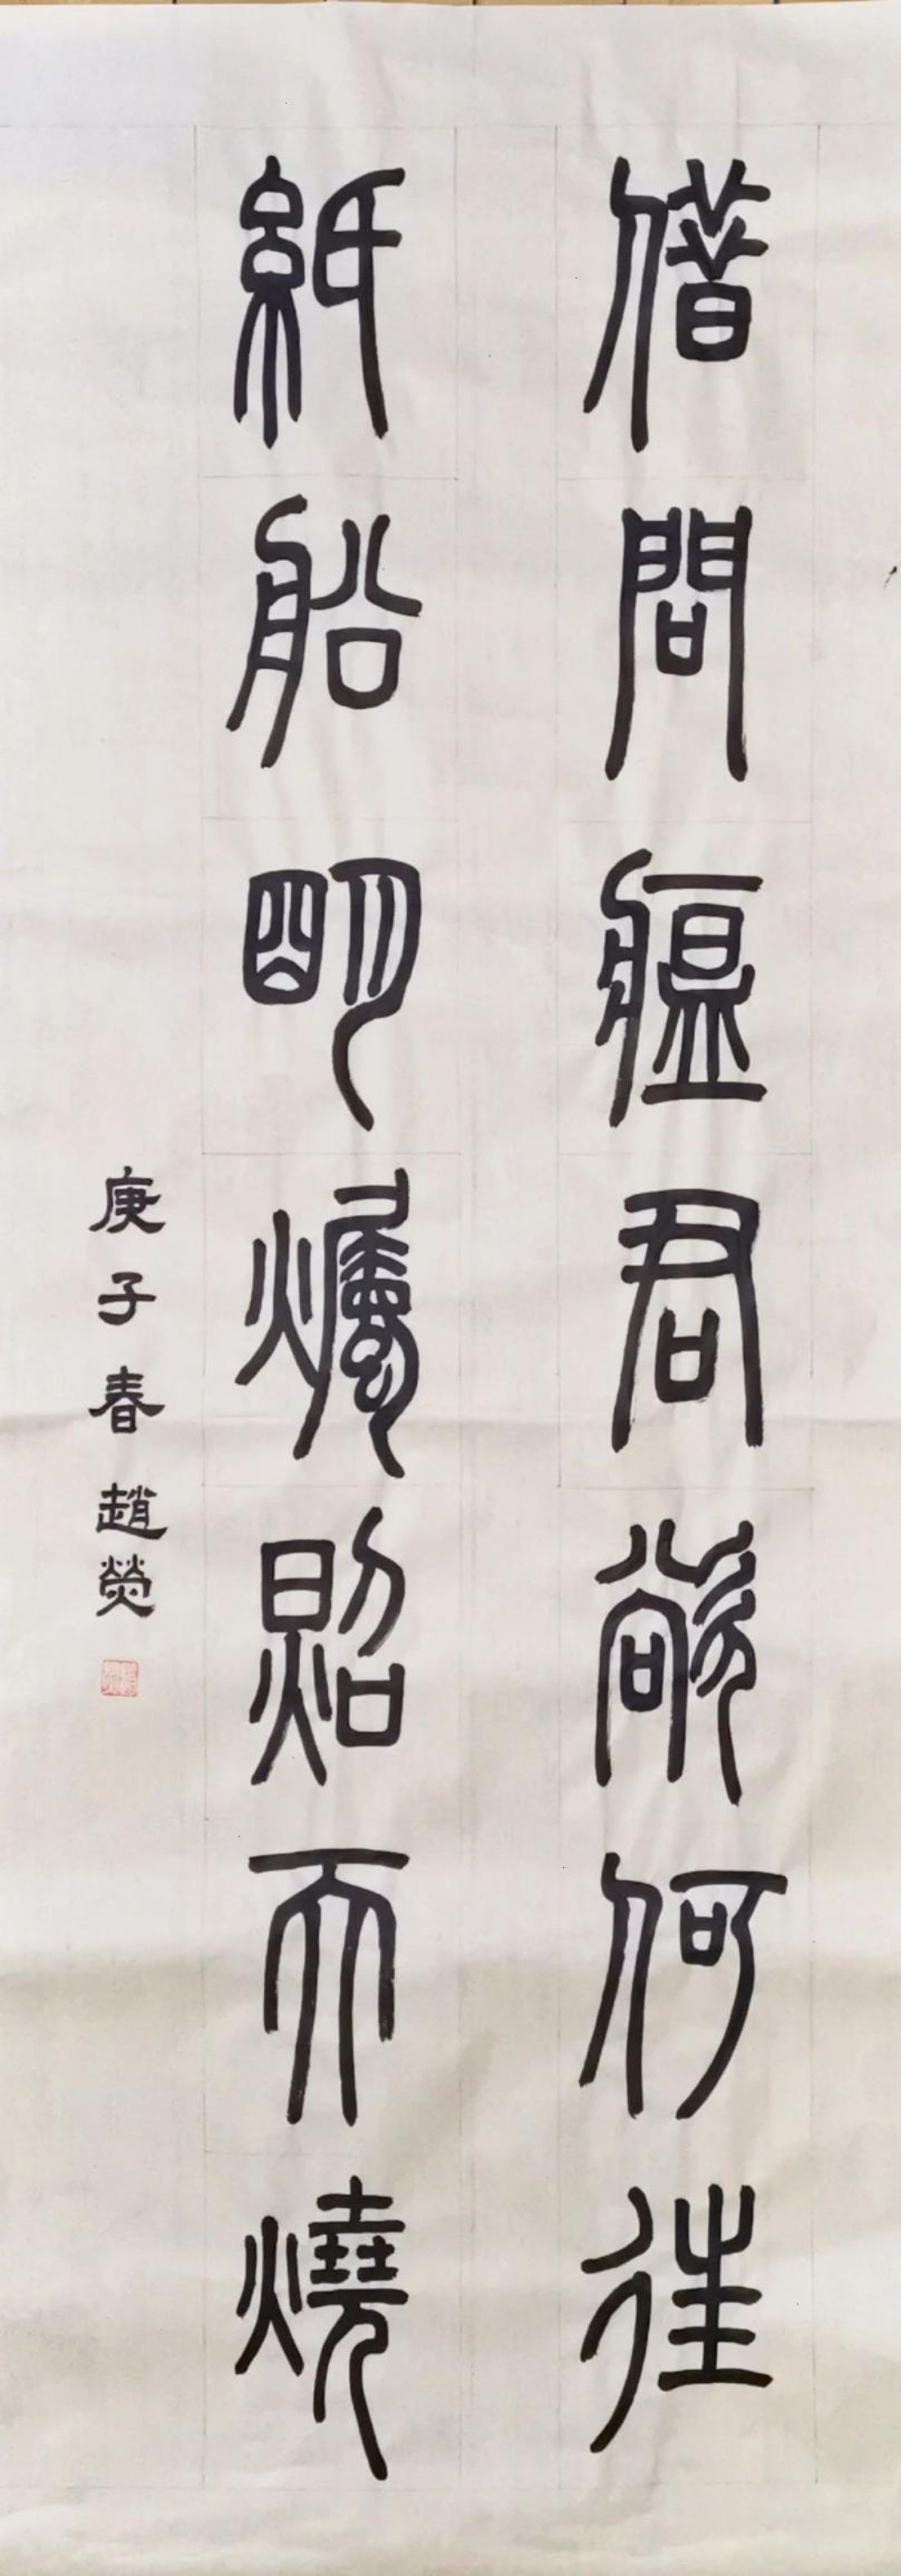 借問瘟君欲何往
紙船明燭照天燒
庚子春趙熒